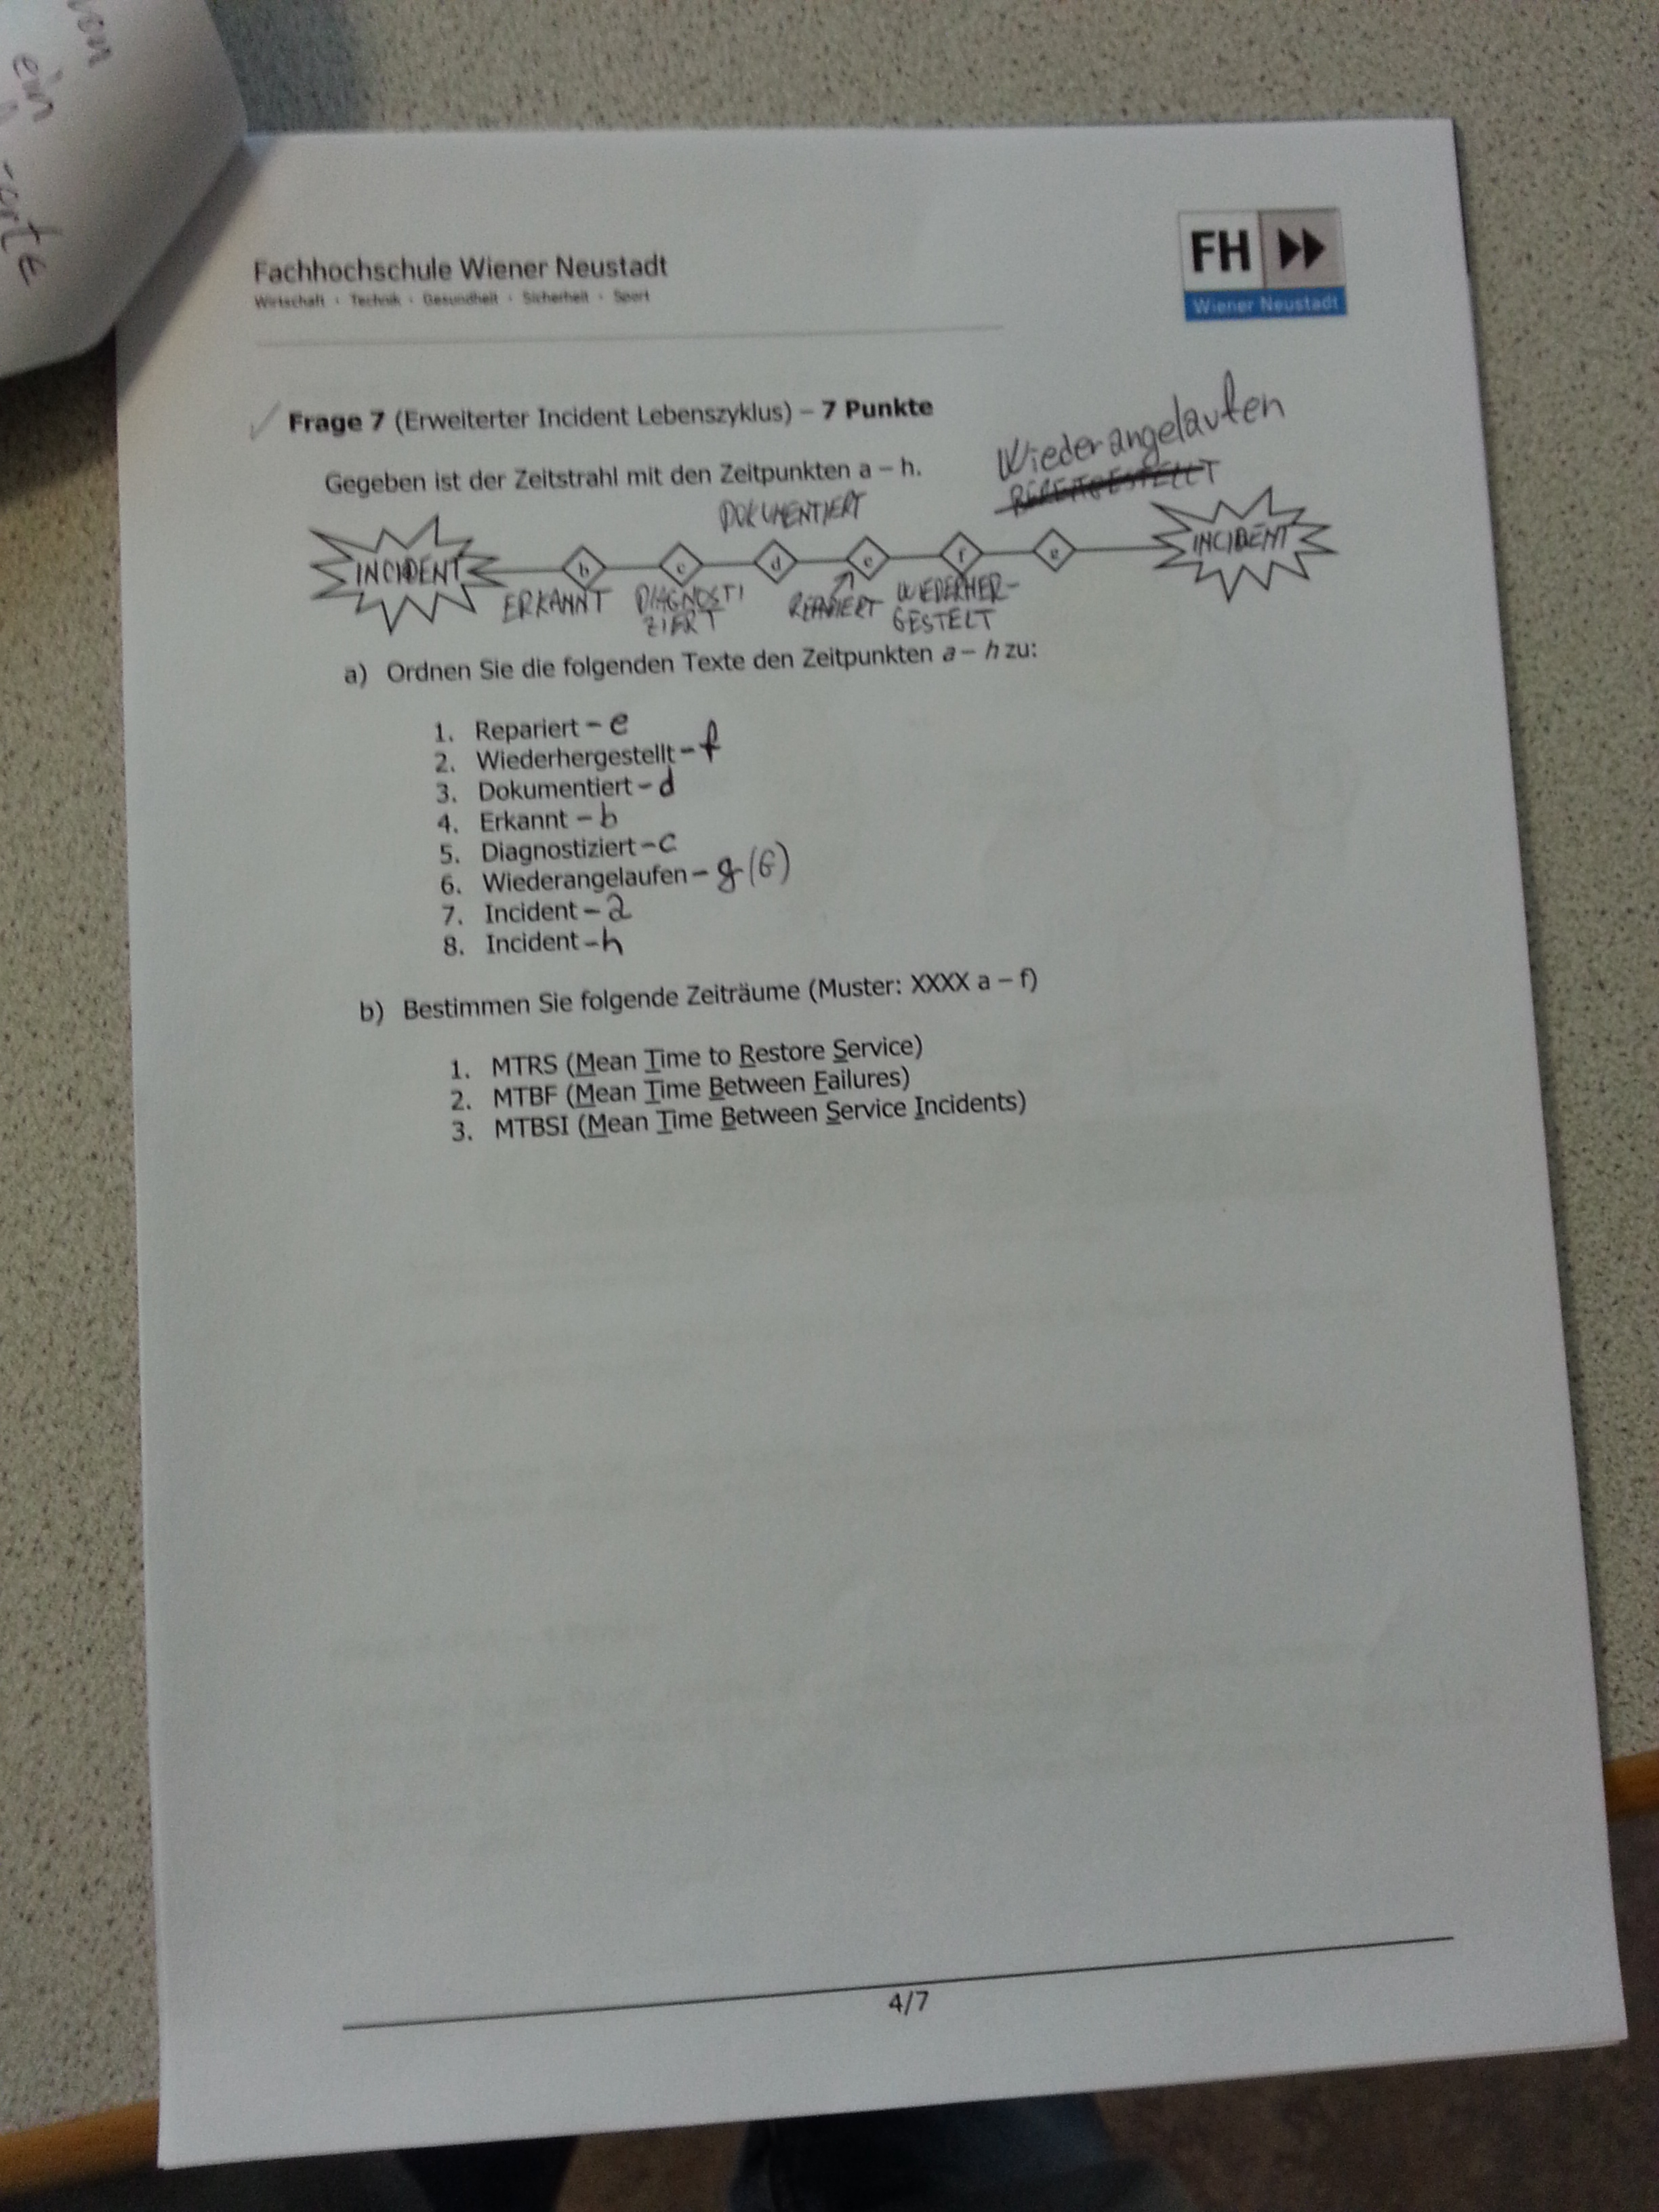 en
ein
orte
Fachhochschule Wiener Neustadt
Wirtschaft · Technik · Gesundheit · Sicherheit · Sport
FH
Wiener Neustadt
Frage 7 (Erweiterter Incident Lebenszyklus) – 7 Punkte
Wiederangelaufen
Gegeben ist der Zeitstrahl mit den Zeitpunkten a – h.
BEREITGESTELLT
DOKUMENTIERT
INCIDENT b c d e f g INCIDENT
ERKANNT DIAGNOSTI REPARIERT WIEDERHER-
ZIERT GESTELT
a) Ordnen Sie die folgenden Texte den Zeitpunkten a – h zu:
1. Repariert – e
2. Wiederhergestellt – f
3. Dokumentiert – d
4. Erkannt – b
5. Diagnostiziert – c
6. Wiederangelaufen – g (G)
7. Incident – a
8. Incident – h
b) Bestimmen Sie folgende Zeiträume (Muster: XXXX a – f)
1. MTRS (Mean Time to Restore Service)
2. MTBF (Mean Time Between Failures)
3. MTBSI (Mean Time Between Service Incidents)
4/7